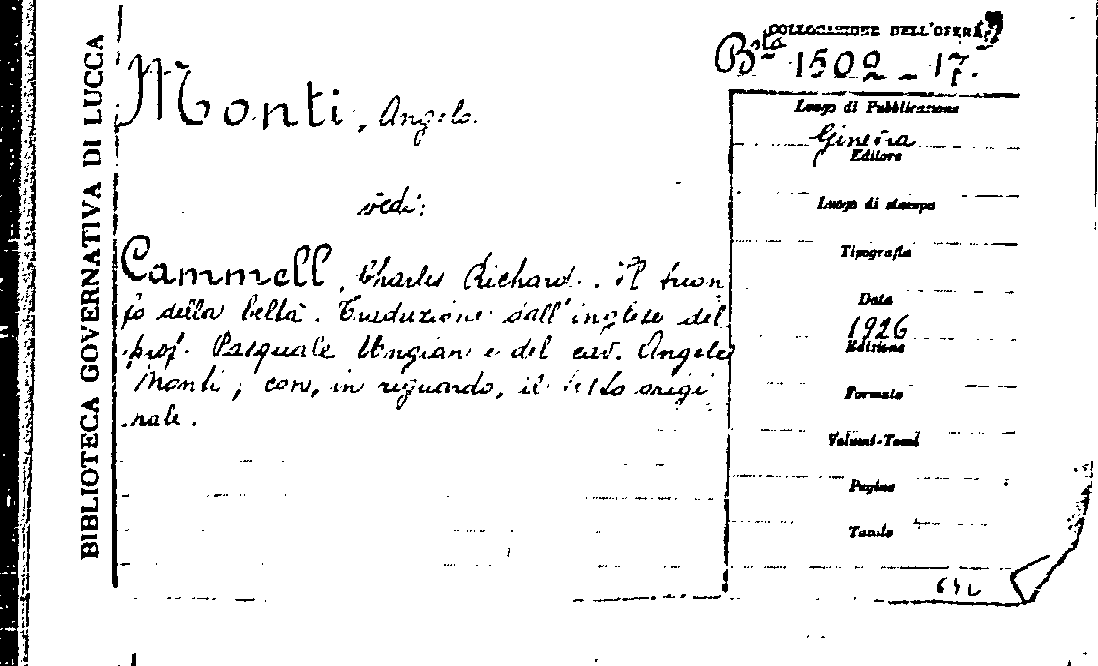 BIBLIOTECA GOVERNATIVA DI LUCCA
COLLOCAZIONE DELL'OPERA
Bta 1502 - 17.
Monti, Angelo.
vedi:
Cammell, Charles Richard. Il trion
fo della beltà. Traduzione dall'inglese del
prof. Pasquale Ungian e del cav. Angelo
Monti; con, in riguardo, il testo origi
nale.
Luogo di Pubblicazione
Ginevra
Editore
Luogo di stampa
Tipografia
Data
1926
Edizione
Formato
Volumi-Tomi
Pagine
Tavole